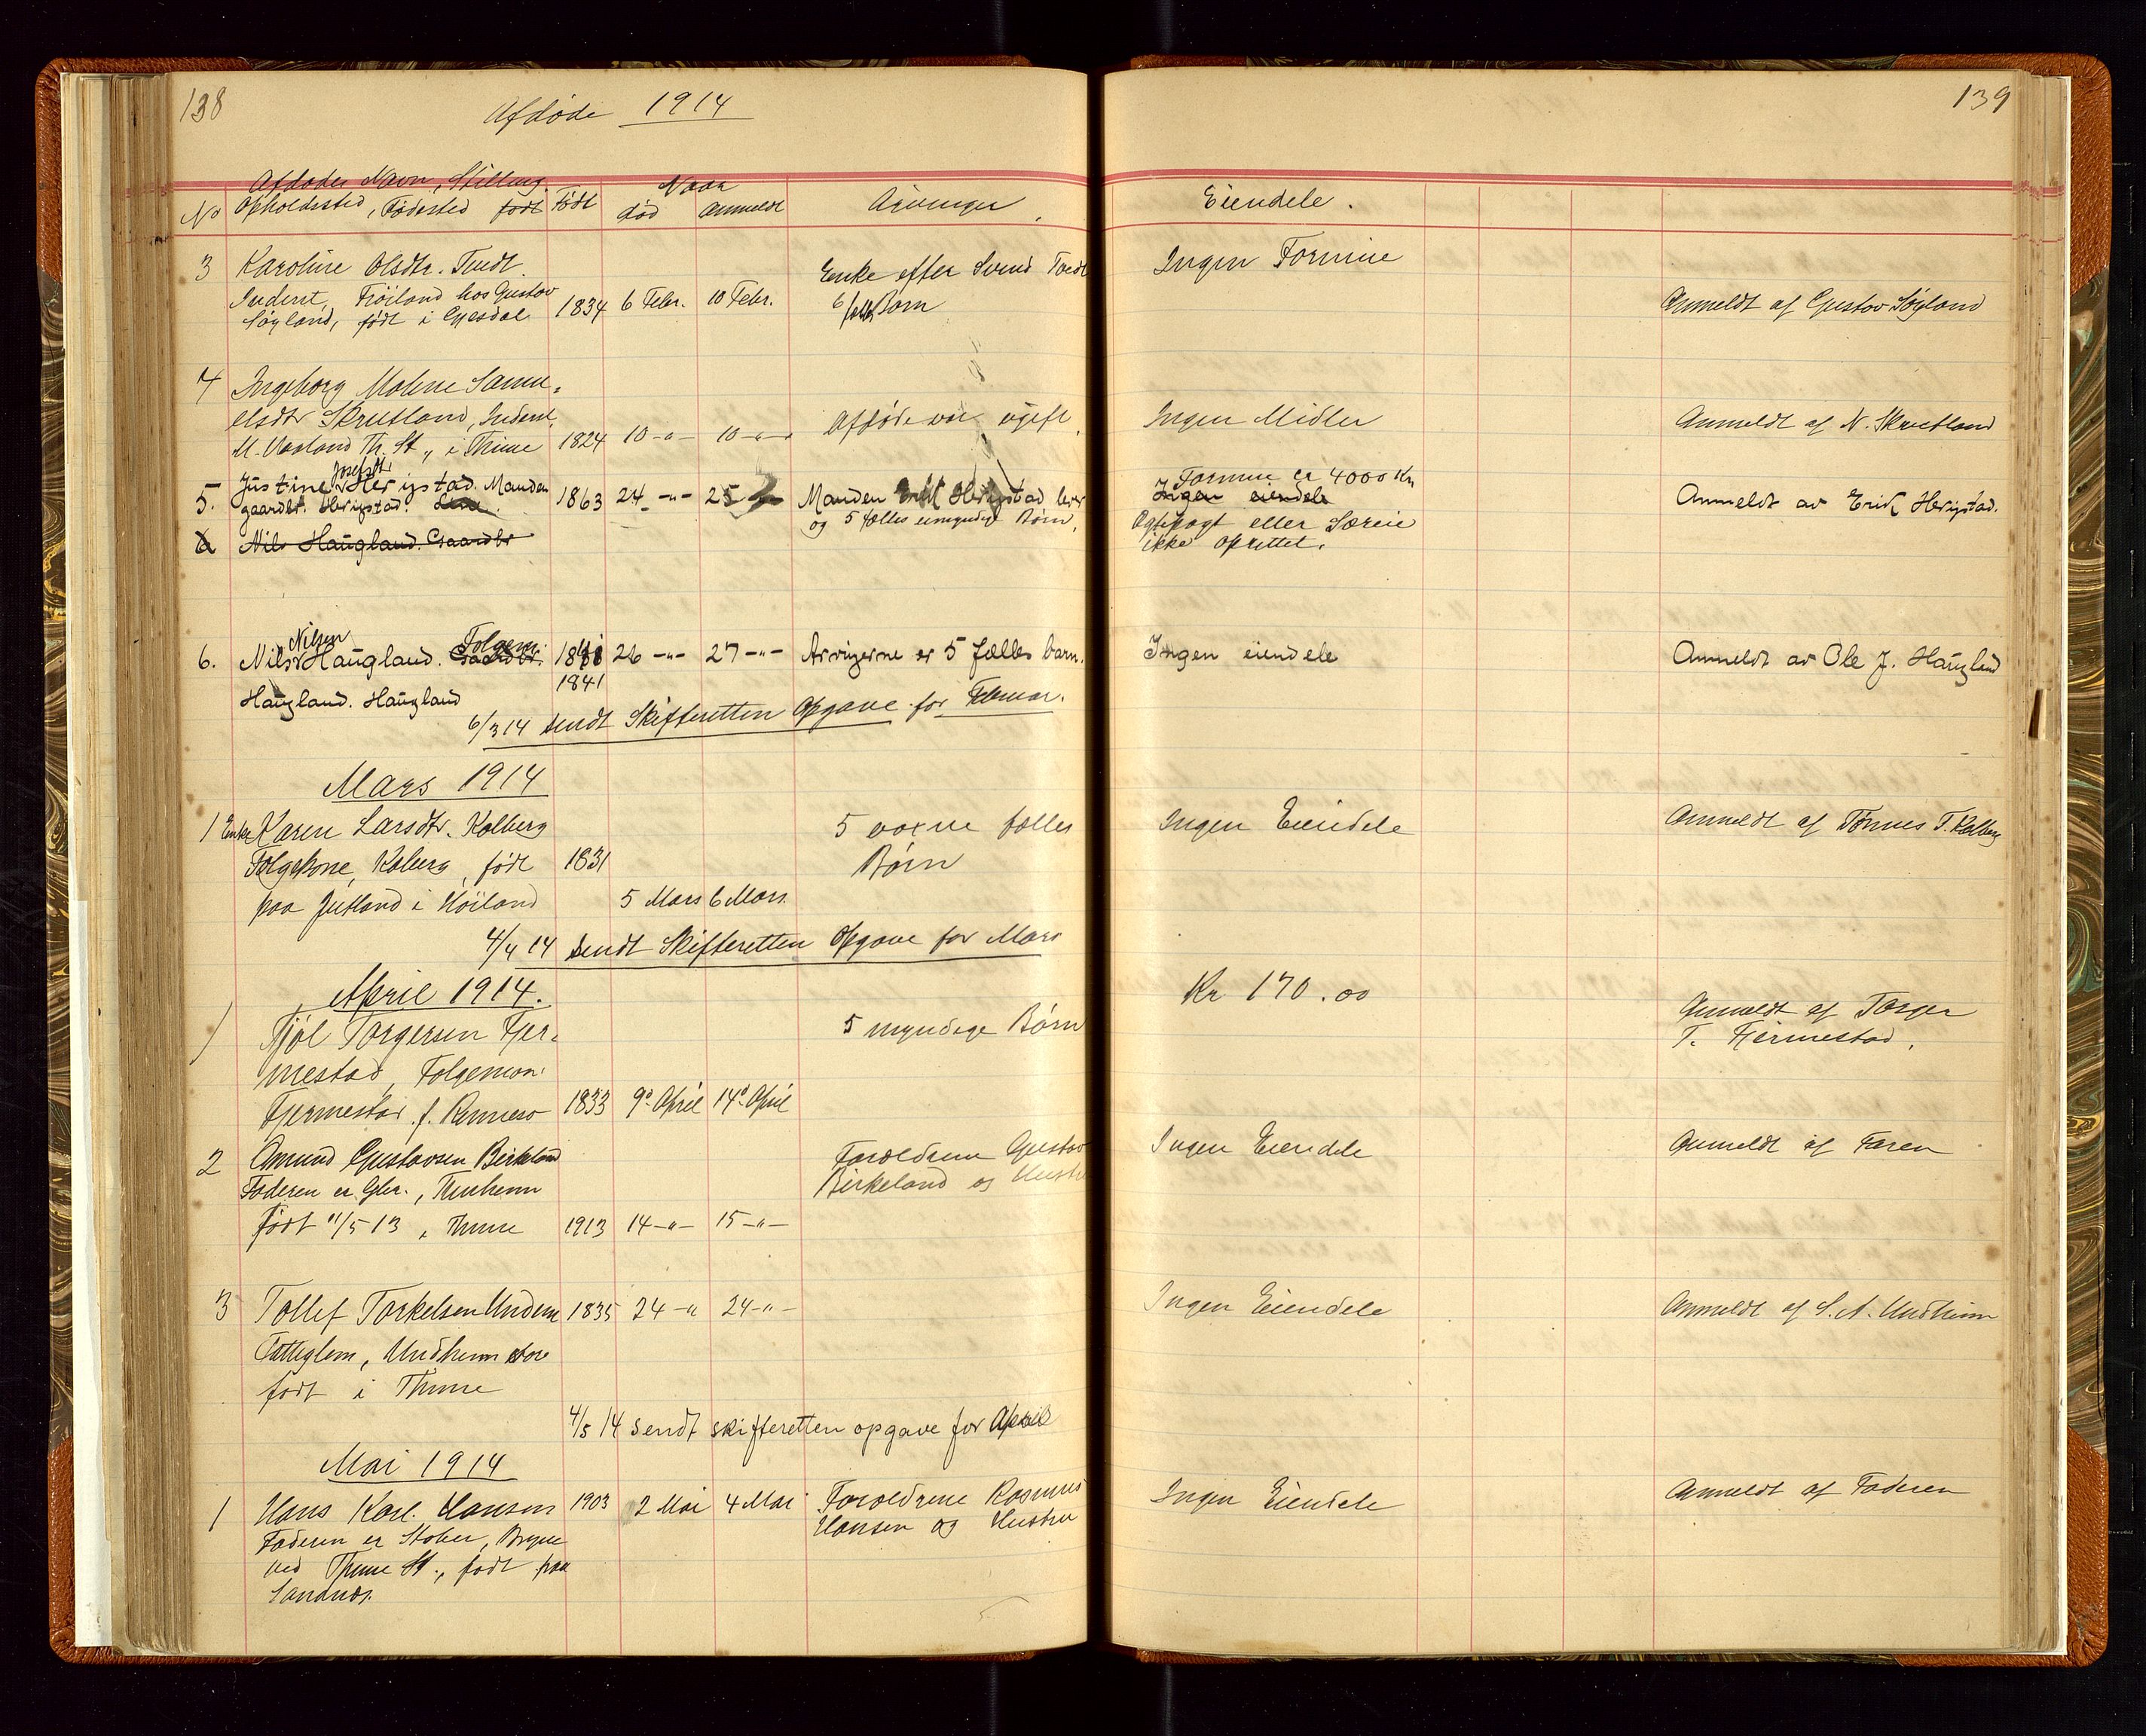 138
Afdöde 1914
139
Afdödes Navn, Stilling
Opholdssted, Födested födt
No
Födt
Naar
död
anmeldt
Arvinger
Eiendele.
3 Karoline Olsdtr. Tvedt.
Inderst, Fröiland hos Gustav
Söyland, födt i Gjesdal
1834 6 Febr. 10 Febr.
Enke efter Svend Tvedt
6 fælles Børn
Ingen Formue
Anmeldt af Gustav Söyland
4 Ingeborg Malene Samu-
elsdtr Skrutland, Inderst,
M. Vasland Th. St., i Thime
1824 10 -"- 10 -"-
Afdöde var ugift
Ingen Midler
Anmeldt af N. Skrutland
5. Justine Josefsdtr Herigstad. Manden
gaardbr. Herigstad.
1863 24 -"- 25
Manden Erik Herigstad lever
og 5 fælles umyndige Børn,
Formue er 4000 Kr,
Ingen eiendele
Ogtepagt eller Særeie
ikke oprettet.
Anmeldt av Erik Herigstad.
6 Nils Haugland. Gaardbr
6. Nils Nilsen Haugland. Gaardbr. Folgem.
Haugland. Haugland
1841
26 -"- 27 -"-
Arvingerne er 5 fælles barn.
Ingen eiendele
Anmeldt av Ole J. Haugland
6/3 14 sendt Skifteretten Opgave for Februar.
Mars 1914
1 Enke Karen Larsdtr. Kalberg
Folgekone, Kalberg, födt
paa Jutland i Höiland
1831
5 Mars 6 Mars.
5 voxne fælles
Børn
Ingen Eiendele
Anmeldt af Tönnes T. Kalberg
4/4 14 sendt Skifteretten Opgave for Mars
April 1914.
1 Njöl Torgersen Fjer-
mestad, Folgemon
Fjermestad f. Rennesø
1833 9d April 14d April
5 myndige Børn
Kr 170.00
Anmeldt af Torger
T. Fjermestad.
2 Amund Gustavsen Birkeland
Faderen er Gbr., Thuheim
födt 11/5 13, i Thime
1913 14 -"- 15 -"-
Foreldrene Gustav
Birkeland og Hustru
Ingen Eiendele
Anmeldt af Faren
3 Tollef Torkelsen Undem
Fattiglem, Undheim store
födt i Thime
1835 24 -" 24 -"-
Ingen Eiendele
Anmeldt af S. A. Undheim
4/5 14 sendt skifteretten opgave for April
Mai 1914
1 Hans Karl. Hansen
Faderen er Stober, Bryne
ved Thime St., födt paa
Sandnæs.
1903 2 Mai 4 Mai
Foreldrene Rasmus
Hansen og Hustru
Ingen Eiendele
Anmeldt af Faderen